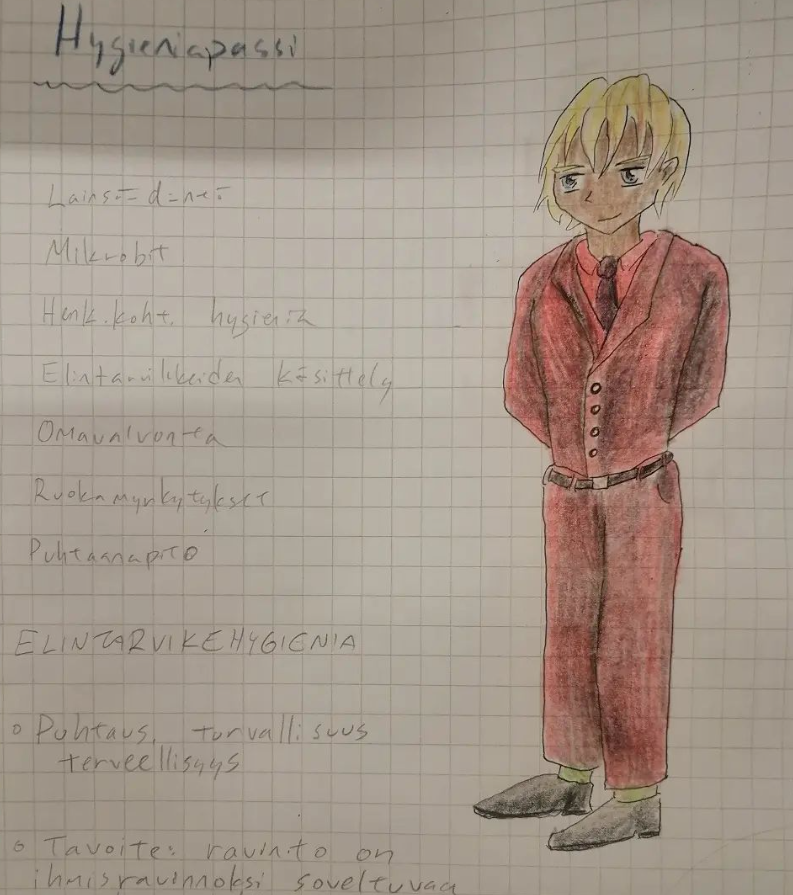 Hygieniapassi
Lainsäädäntö
Mikrobit
Henk.koht. hygienia
Elintarvikkeiden käsittely
Omavalvonta
Ruokamyrkytykset
Puhtaanapito
ELINTARVIKEHYGIENIA
Puhtaus, turvallisuus
terveellisyys
Tavoite: ravinto on
ihmisravinnoksi soveltuvaa